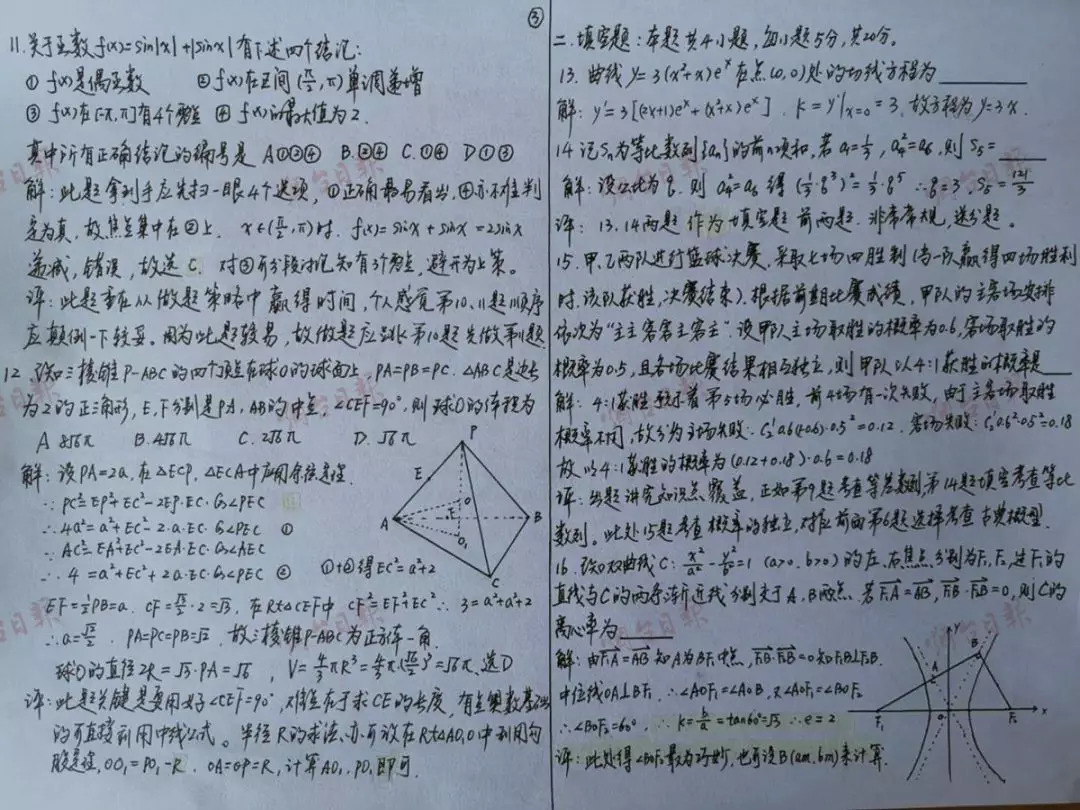 ③
11.关于函数 f(x)=sin|x|+|sinx| 有下述四个结论:
① f(x)是偶函数 ② f(x)在区间(π/2,π)单调递增
③ f(x)在[-π,π]有4个零点 ④ f(x)的最大值为2.
其中所有正确结论的编号是 A①②④ B.②④ C.①④ D①③
解:此题拿到手应先扫一眼4个选项,①正确最易看出,④亦不难判
定为真,故焦点集中在②上. x∈(π/2,π)时. f(x)=sinx+sinx=2sinx
递减,错误,故选C. 对③可分段讨论知有3个零点,避开为上策。
评:此题重在从做题策略中赢得时间,个人感觉第10、11题顺序
应颠倒一下较妥。因为此题较易,故做题应跳第10题先做第11题
12. 已知三棱锥P-ABC的四个顶点在球O的球面上,PA=PB=PC. △ABC是边长
为2的正三角形,E,F分别是PA,AB的中点,∠CEF=90°,则球O的体积为
A 8√6π B.4√6π C.2√6π D.√6π
解:设PA=2a,在△ECP,△ECA中应用余弦定理
∵ PC²=EP²+EC²-2EP·EC·Cos∠PEC
∴4a²=a²+EC²-2·a·EC·Cos∠PEC ①
∵AC²=EA²+EC²-2EA·EC·Cos∠AEC
∴ 4=a²+EC²+2a·EC·Cos∠PEC ② ①+②得EC²=a²+2
EF=½PB=a. CF=√3/2·2=√3, 在Rt△CEF中 CF²=EF²+EC² ∴ 3=a²+a²+2
∴a=√2/2. PA=PC=PB=√2. 故三棱锥P-ABC为正方体一角.
球O的直径2R=√3·PA=√6, V=4/3πR³=4/3π·(√6/2)³=√6π,选D
评:此题关键是要用好∠CEF=90°,难能在于求CE的长度,有点奥数基础
的可直接利用中线公式。半径R的求法,亦可放在Rt△AO₁O中利用勾
股定理,OO₁=PO₁-R. OA=OP=R,计算AO₁,PO₁即可.
P
E
O
A
B
O₁
C
二.填空题:本题共4小题,每小题5分,共20分。
13. 曲线 y=3(x²+x)eˣ在点(0,0)处的切线方程为
解:y'=3[(2x+1)eˣ+(x²+x)eˣ]. k=y'|x=0=3,故方程为y=3x.
14 记Sn为等比数列{an}的前n项和,若a₁=1/3, a₄²=a₆,则S₅=
解:设公比为q,则a₄²=a₆得(1/3q³)²=1/3q⁵ ∴q=3. S₅=121/3
评:13,14两题作为填空题前两题.非常常规,送分题。
15.甲、乙两队进行篮球决赛,采取七场四胜制(当一队赢得四场胜利
时,该队获胜,决赛结束).根据前期比赛成绩,甲队的主客场安排
依次为“主主客客主客主”.设甲队主场取胜的概率为0.6,客场取胜的
概率为0.5,且各场比赛结果相互独立,则甲队以4:1获胜的概率是
解:4:1获胜预示着第5场必胜,前4场有一次失败,由于主客场取胜
概率不同,故分为主场失败:C₂¹0.6(1-0.6)·0.5²=0.12. 客场失败:C₂¹0.6²·0.5²=0.18
故以4:1获胜的概率为(0.12+0.18)·0.6=0.18
评:出题讲究知识点覆盖,正如第9题考查等差数列,第14题填空考查等比
数列。此处15题考查概率的独立,对应前面第6题选择考查古典概型.
16.已知双曲线C:x²/a²-y²/b²=1 (a>0,b>0)的左、右焦点分别为F₁,F₂,过F₁的
直线与C的两条渐近线分别交于A,B两点.若F₁A=AB,F₁B·F₂B=0,则C的
离心率为
解:由F₁A=AB知A为BF₁中点,F₁B·F₂B=0知F₁B⊥F₂B.
中位线OA⊥BF₁.∴∠AOF₁=∠AOB,又∠AOF₁=∠BOF₂
∴∠BOF₂=60°. ∴k=b/a=tan60°=√3 ∴e=2
评:此处得∠BOF₂最为巧妙,也可设B(am,bm)来计算.
y
A
B
F₁
O
F₂
x